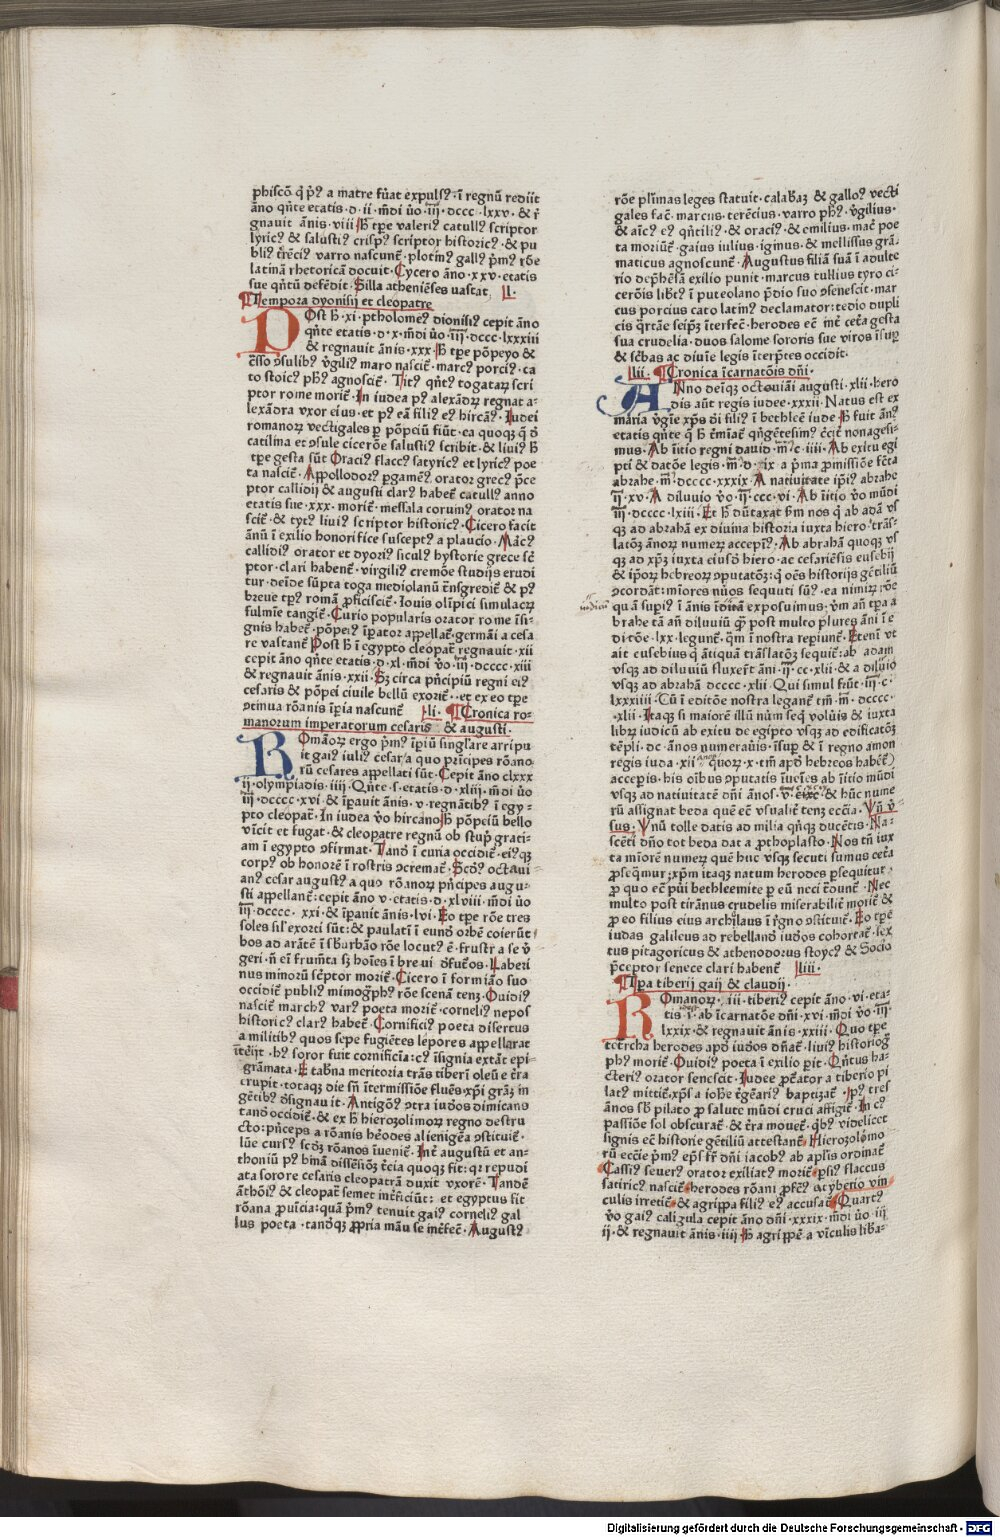 phiscō q̇ p̓ꝰ a matre fu̓at expulsꝰ· ī regnū rediit
āno qn̄te etatis · d · ii · m̄di ūo · iii · dccc · lxxv · & r̓
gnauit ānis · viii · ħ tp̄e valeriꝰ catullꝰ scriptor
lyricꝰ & salustiꝰ crispꝰ scriptor historicꝰ · & pu
bliꝰ t̓rēciꝰ varro nascunt̄ · plotinꝰ gallꝰ p̓mꝰ rōe
latinā rhetoricā docuit · Cycero āno · xxv · etatis
sue qn̄tū defēdit · Silla atheniēses vastat · l·
Tempora dyonisij et cleopatre
POst ħ · xi · ptholomeꝰ dionisiꝰ cepit āno
qn̄te etatis · d · x · m̄di ūo · iii · dccc · lxxxiii
& regnauit ānis · xxx · ħ tp̄e pōpeyo &
c̄sso ꝯsulibꝰ v̓giliꝰ maro nascit̄ · marcꝰ porciꝰ · ca
to stoicꝰ pħꝰ agnoscit̄ · Titꝰ qn̄tꝰ togataꝝ scri
ptor rome morit̄ · In iudea pꝰ alexādꝝ regnat a-
lexādra vxor eius · et pꝰ eā filiꝰ eꝰ hircāꝰ · Iudei
romanoꝝ vectigales ꝑ pōpeiū fiūt · ea quoqꝫ q̄ d̓
catilina et ꝯsule cicerōe salustiꝰ scribit · & liuiꝰ ħ
tp̄e gesta sūt Oraciꝰ flaccꝰ satyricꝰ et lyricꝰ poe
ta nascit̄ · Appollodorꝰ ꝑgamēꝰ orator grecꝰ p̄ce
ptor callidij & augusti clarꝰ habet̄ catullꝰ anno
etatis sue · xxx · morit̄ · messala coruinꝰ orator na
scit̄ · & tytꝰ liuiꝰ scriptor historicꝰ · Cicero facit
ānū ī exilio honorifice susceptꝰ a plaucio · Marcꝰ
callidiꝰ orator et dyorꝰ siculꝰ hystorie grece sc̄
ptor · clari habent̄ · virgiliꝰ cremōe studijs erudi
tur · deīde sūpta toga mediolanū t̄nsgredit̄ & pꝰ
breue tp̄ꝰ romā ꝓficiscit̄ · Iouis olīpici simulacꝝ
fulmīe tangit̄ · Curio popularis orator rome īsi-
gnis habet̄ · pōpeiꝰ īꝑator appellat̄ · germāi a cesa
re vastant̄ Post ħ ī egypto cleopat̄ regnauit · xii
cepit āno qn̄te etatis · d · xl · m̄di v̄o · iii · dcccc · xiii
& regnauit ānis · xxii · Sꝫ circa p̄ncipiū regni eiꝰ
cesaris & pōpei ciuile bellū exorit̄ · et ex eo tp̄e
ꝯtinua rōanis īꝑia nascunt̄ · li · Cronica ro-
manorum imperatorum cesaris & augusti ·
ROmāoꝝ ergo p̓mꝰ īꝑiū singl̓are arripu
it gaiꝰ iuliꝰ cesar / a quo prīcipes rōano-
rū cesares appellati sūt · Cepit āno clxxx
ij · olympiadis · iiii · Qn̄te · s · etatis · d · xliii · m̄di ūo
iii · dcccc · xvi · & īꝑauit ānis · v · regnātibꝰ ī egy-
pto cleopat̄ · In iudea v̄o hircāo ħ pōpeiū bello
vīcit et fugat · & cleopatre regnū ob stupꝝ grati-
am ī egypto ꝯfirmat · Tandē ī curia occidit̄ · eiꝰqꝫ
corpꝰ ob honorē ī rostris ꝯcremat̄ · Scd̓ꝰ octaui-
anꝰ cesar augustꝰ a quo rōanoꝝ p̄ncipes augu-
sti appellant̄ : cepit āno v · etatis · d · xlviii · m̄di ūo
iii · dcccc · xxi · & īꝑanit ānis · lvi · Eo tp̄e rōe tres
soles sil̓ exorti sūt : & paulatī ī eundē orbē coierūt
bos ad arātē ī sb̓urbāo rōe locutꝰ ē · frustr̄a se v̓
geri · n̄ em̄ frum̄ta sꝫ hoīes ī breui dfut̓os · Laberi
nus minorū sc̄ptor morit̄ · Cicero ī formiāo suo
occidit̄ publiꝰ mimog̓phꝰ rōe scenā tenꝫ · Ouidiꝰ
nascit̄ marchꝰ varꝰ poeta morit̄ · corneliꝰ nepos
historicꝰ clarꝰ habet̄ · Cornificiꝰ poeta disertus
a militibꝰ quos sepe fugiētes lepores appellarat
īteriit · hꝰ soror fuit cornificīa : cꝰ īsignia extāt epi-
grāmata · E tab̓na meritoria trās tiberī oleū e t̓ra
erupit · totaqꝫ die sn̄ ītermissiōe fluēs · xp̄i gr̄aꝫ in
gētibꝰ d̓signauit · Antigōꝰ ꝯtra iudꝰos dimicans
tandē occidit̄ · & ex ħ hierozolimoꝝ regno destru
cto : p̄nceps a rōanis he̓odes alienigēa ꝯstituit̄ ·
lūe cursꝰ scd̓ꝫ rōanos īuenit̄ · Int̓ augustū et an-
thoniū pꝰ bīnā dissēsiōꝫ t̓cia quoqꝫ fit : qꝛ repudi
ata sorore cesaris cleopatrā duxit vxorē · Tandē
āthōiꝰ & cleopat̄ semet int̓ficiūt : et egyptus fit
rōana ꝓuīcia : quā p̓mꝰ tenuit gaiꝰ corneliꝰ gal
lus poeta · tandēqꝫ ꝓpria māu se int̓fec̄ · Augustꝰ
rōe pl̓imas leges statuit · calab̓aꝫ & galloꝰ vecti
gales fac̄ · marcus · terēcius · varro pħꝰ · v̓gilius ·
& aīcꝰ eꝰ qn̄tiliꝰ · & oraciꝰ · & emilius · macꝰ poe
ta moriūt̄ · gaius iulius · iginus · & mellissus grā-
maticus agnoscunt̄ · Augustus filiā suā ī adulte
rio dep̓hēsā exilio punit · marcus tullius tyro ci-
cerōis lib̓tꝰ ī puteolano p̄dio suo ꝯsenescit · mar
cus porcius cato latinꝰ declamator : tedio dupli
cis q̓rtāe seip̄ꝫ īterfec̄ · herodes eē int̓ cet̓a gesta
sua crudelia · duos salome sororis sue viros īsuꝑ
& sc̓bas ac diuīe legis īterp̄tes occidit ·
lii · Cronica īcarnatōis dn̄i ·
ANno deīqꝫ octouiāi augusti · xlii · hero
dis aūt regis iudee · xxxii · Natus est ex
maria v̓gīe xp̄s di filiꝰ ī bethleē iude ħ fuit ānꝰ
etatis qn̄te q̄ ħ t̓mīat̄ qn̄gētesimꝰ c̄cit̄ nonagesi-
mus · Ab īitio regni dauid · m̄ · c · iiii · Ab exitu egi
pti & datōe legis · m̄ · d · ix · a p̓ma ꝓmissiōe fc̄ta
abrahe · m̄ · dcccc · xxxix · A natiuitate ip̄iꝰ abrahe
ii · xv · A diluuio v̄o · ii · ccc · vi · Ab īitio v̄o mūdi
iii · dcccc · lxiii · Et ħ dūtaxat sm̄ nos q̇ ab adā vs
qꝫ ad abrahā ex diuina historia iuxta hiero · trās-
latōꝫ ānoꝝ numeꝝ accepīꝰ · Ab abrahā quoqꝫ vs
qꝫ ad xp̄ꝫ iuxta eiusdē hiero · ac cesariēsis eusebij
& ip̄oꝝ hebreoꝝ ꝯputatōꝫ : q̇ oēs historijs gētiliū
ꝯcordāt : mīores nūos sequuti sūꝰ · ea nimiꝝ rōe
qua supiꝰ ī ānis iudicū exposuimus · v̓m an̄ tp̄a a
brahe tā an̄ diluuiū qꝫ post multo plures āni ī e
ditōe · lxx · legunt̄ · q̄m ī nostra repiunt̄ · Eteni vt
ait eusebius q̄ ātiquā trāslatōꝫ sequit̄ : ab adam
vsqꝫ ad diluuiū fluxer̄t āni · ii · cc · xlii · & a diluuio
vsqꝫ ad abrahā dcccc · xlii · Qui simul fiūt · iii · c ·
lxxxiiii · Cū ī editōe nostra legant̄ tm̄ · m̄ · dcccc
· xlii · Itaqꝫ si maiorē illū nūm seq̇ volūis & iuxta
libꝝ iudicū ab exitu de egipto vsqꝫ ad edificatōꝫ
tēpli · dc · ānos numerau̓is · īsuꝑ & ī regno amon
regis iuda · xii · ānos quoꝝ · x · tm̄ apd̓ hebreos habēt̄
acceꝑis · his oībus ꝯputatis īuēies ab īitio mūdi
vsqꝫ ad natiuitatē dn̄i ānos · v̄ · cxcꝰ · & hūc nume
rū assignat beda quē eē vsualit̓ tenꝫ ecc̄ia · Vn̄ v̓-
sus · Vnū tolle datis ad milia qn̄qꝫ ducētis · Na-
scēti dn̄o tot beda dat a ꝓthoplasto · Nos tn̄ iux
ta mīorē numeꝝ quē huc vsqꝫ secuti sumus cet̓a
ꝓseq̄mur ; xp̄m itaqꝫ natum herodes ꝑsequitur
ꝓ quo eē pūi bethleemite ꝑ eū neci tōunt̄ · Nec
multo post tirānus crudelis miserabilit̓ morit̄ &
ꝓ eo filius eius archil̓aus ī r̓gno ꝯstituit̄ · Eo tp̄e
iudas galileus ad rebellandū iudꝰos cohortat̄ · sex
tus pitagoricus & athenodorus stoycꝰ & Socio
p̄ceptor senece clari habent̄ liii ·
Tp̄a tiberij gaij & claudij ·
ROmanoꝝ · iii · tiberiꝰ cepit āno · vi · eta-
tis · i · ab īcarnatōe dn̄i · xvi · m̄di v̄o · iii ·
lxxix · & regnauit ānis · xxiii · Quo tp̄e
tetrcha herodes apd̓ iudꝰos dn̄at̄ · liuiꝰ historiog̓
phꝰ morit̄ · Ouidiꝰ poeta ī exilio ꝑit · Qn̄tus ha-
cteriꝰ orator senescit · Iudee ꝓc̓ator a tiberio pi
latꝰ mittit̄ · xp̄s a iohē t̓gēariꝰ baptizat̄ · Ip̄ꝰ tres
ānos sb̓ pilato ꝓ salute mūdi cruci affigit̄ · In cꝰ
passiōe sol obscurat̄ · & t̓ra mouet̄ · qb̓ꝰ videlicet
signis eē historie gētiliū attestant̄ · Hierozolꝰmo
rū ecc̄ie p̓mꝰ ep̄s fr̄ dn̄i iacobꝰ ab apl̓is ordinat̄
Cassiꝰ seuerꝰ orator exiliatꝰ morit̄ · ꝑsiꝰ flaccus
satiricꝰ nascit̄ · herodes rōani ꝓfc̄tꝰ a tyberio vin
culis irretit̄ · & agrippa filiꝰ eꝰ accusat̄ · Quartꝰ
v̄o gaiꝰ caligula cepit āno dn̄i · xxxix · m̄di ūo · iii
ii · & regnauit ānis · iiii ħ agripp̄ē a vīculis lib̓a-
Digitalisierung gefördert durch die Deutsche Forschungsgemeinschaft - DFG